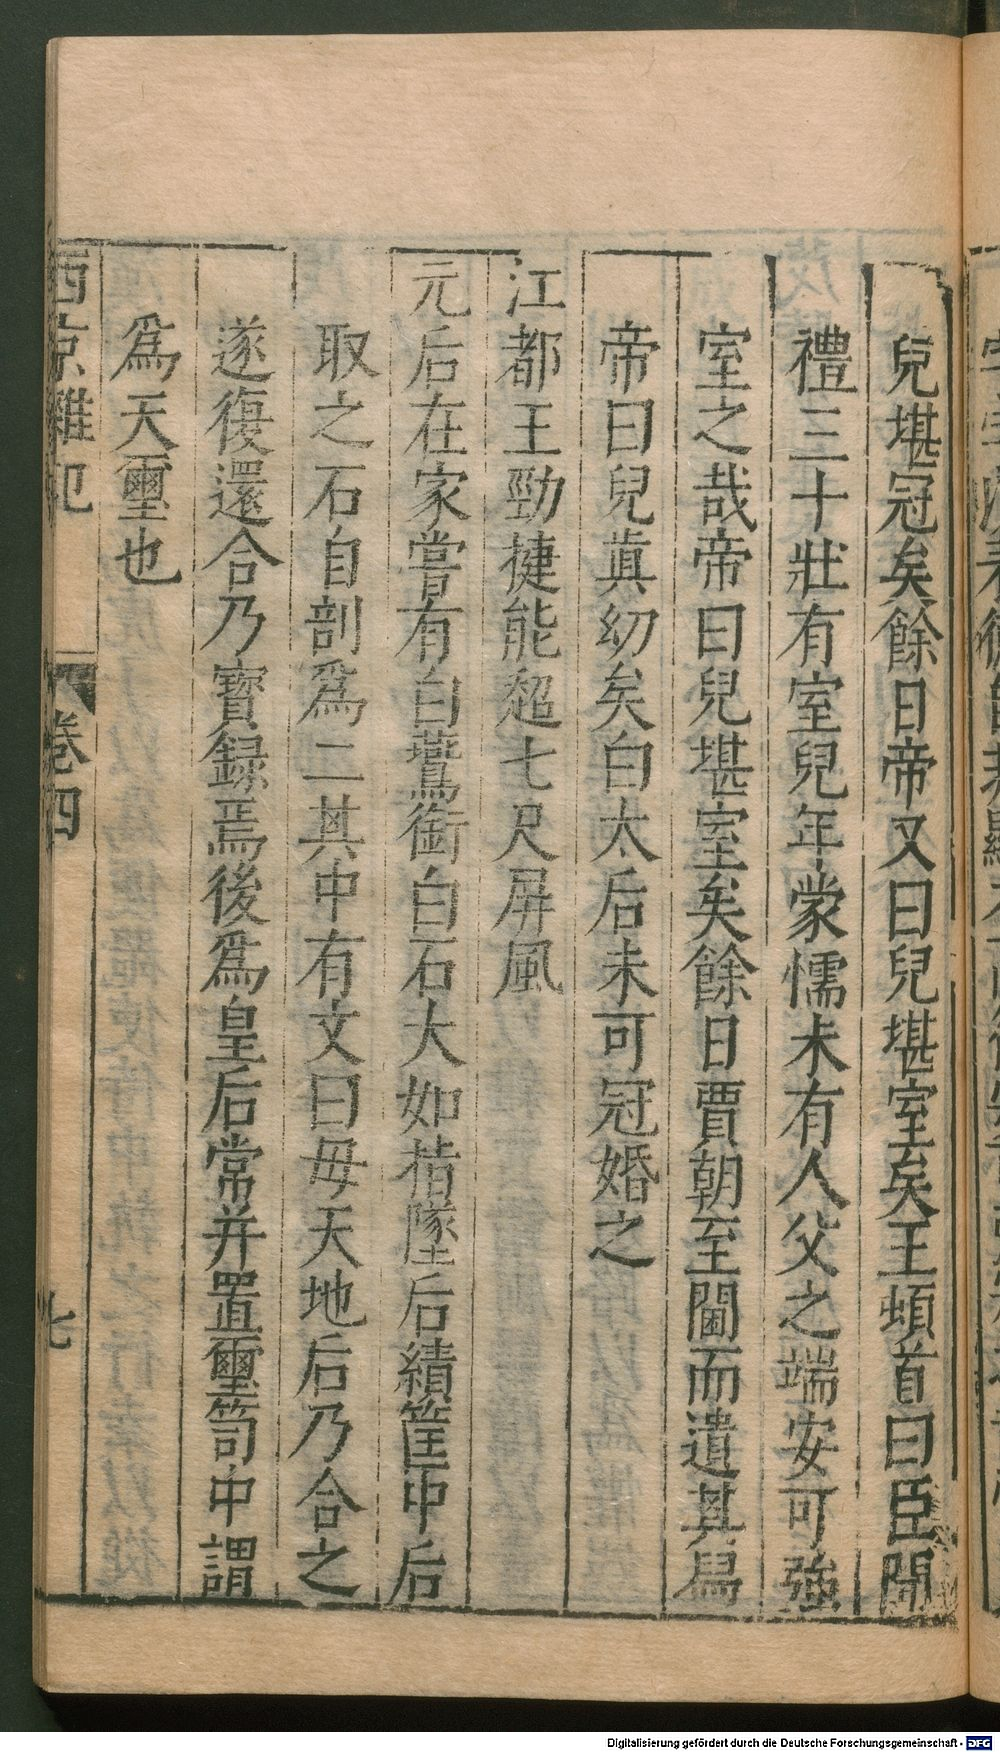 兒堪冠矣餘日帝又曰兒堪室矣王頓首曰臣聞
禮三十壯有室兒年蒙懦未有人父之端安可強
室之哉帝曰兒堪室矣餘日賈朝至閫而遺其舄
帝曰兒真幼矣白太后未可冠婚之
江都王勁捷能超七尺屏風
元后在家嘗有白鷰銜白石大如指墜后績筐中后
取之石自剖爲二其中有文曰母天地后乃合之
遂復還合乃寶録焉後爲皇后常并置璽笥中謂
爲天璽也
西京雜記 卷四 七
Digitalisierung gefördert durch die Deutsche Forschungsgemeinschaft - DFG